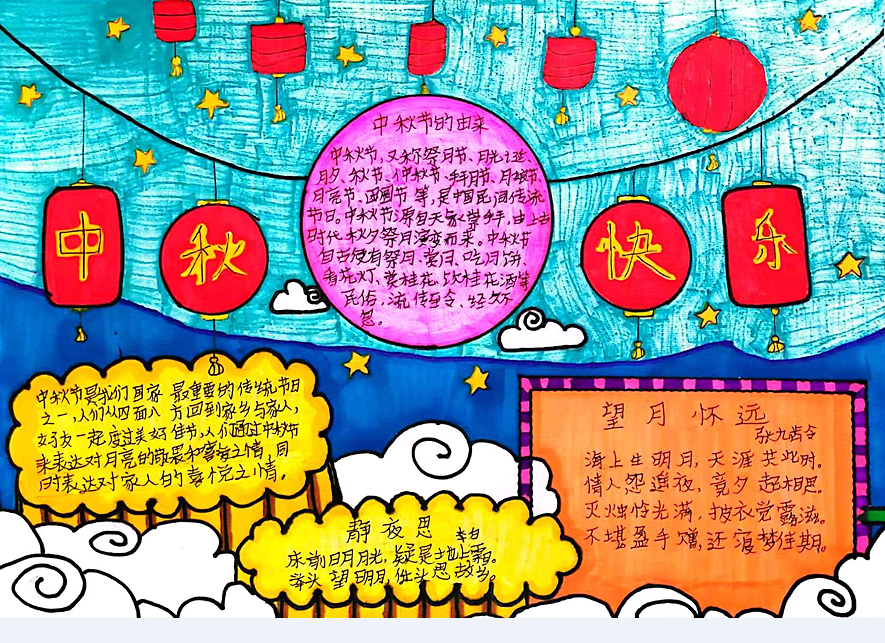 中秋快乐
中秋节的由来
中秋节,又称祭月节、月光诞、
月夕、秋节、仲秋节、拜月节、月娘节、
月亮节、团圆节等,是中国民间传统
节日。中秋节源自天象崇拜,由上古
时代秋夕祭月演变而来。中秋节
自古便有祭月、赏月、吃月饼、
看花灯、赏桂花、饮桂花酒等
民俗,流传至今,经久不
息。
中秋节是我们国家最重要的传统节日
之一,人们从四面八方回到家乡与家人,
好友一起度过美好佳节,人们通过中秋节
来表达对月亮的敬畏和喜爱之情,同
时表达对家人的喜悦之情。
静夜思
李白
床前明月光,疑是地上霜。
举头望明月,低头思故乡。
望月怀远
张九龄
海上生明月,天涯共此时。
情人怨遥夜,竟夕起相思。
灭烛怜光满,披衣觉露滋。
不堪盈手赠,还寝梦佳期。